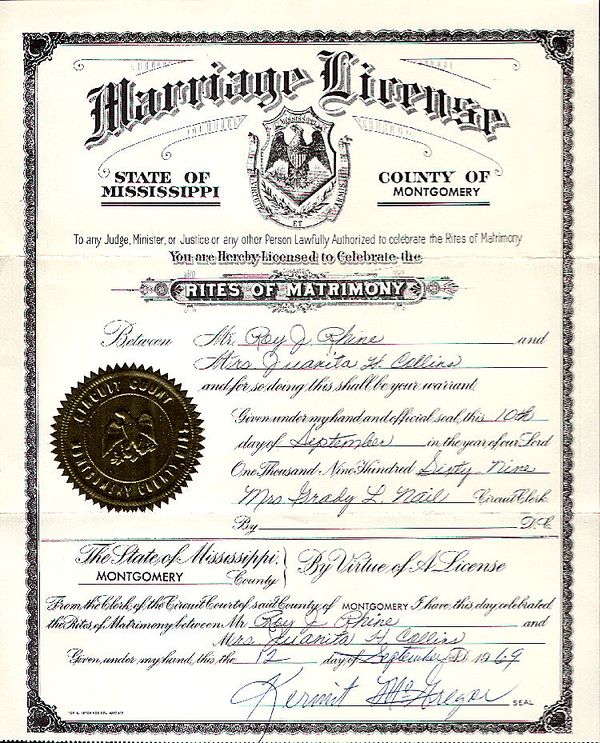 Marriage License
STATE OF MISSISSIPPI
COUNTY OF MONTGOMERY
To any Judge, Minister, or Justice or any other Person Lawfully Authorized to celebrate the Rites of Matrimony
You are Hereby Licensed to Celebrate the
RITES OF MATRIMONY
Between Mr. Roy J. Rhine and
Mrs Juanita H Collins
and for so doing this shall be your warrant.
Given under my hand and official seal, this 10th
day of September in the year of our Lord
One Thousand Nine Hundred Sixty Nine
Mrs Grady L. Nail Circuit Clerk
By D.C.
CIRCUIT COURT
The State of Mississippi,
MONTGOMERY County
By Virtue of A License
From the Clerk of the Circuit Court of said County of MONTGOMERY I have this day celebrated
the Rites of Matrimony between Mr Roy J. Rhine and
Mrs. Juanita H Collins
Given, under my hand, this the 12 day of September 1969
Kermit McGregor SEAL